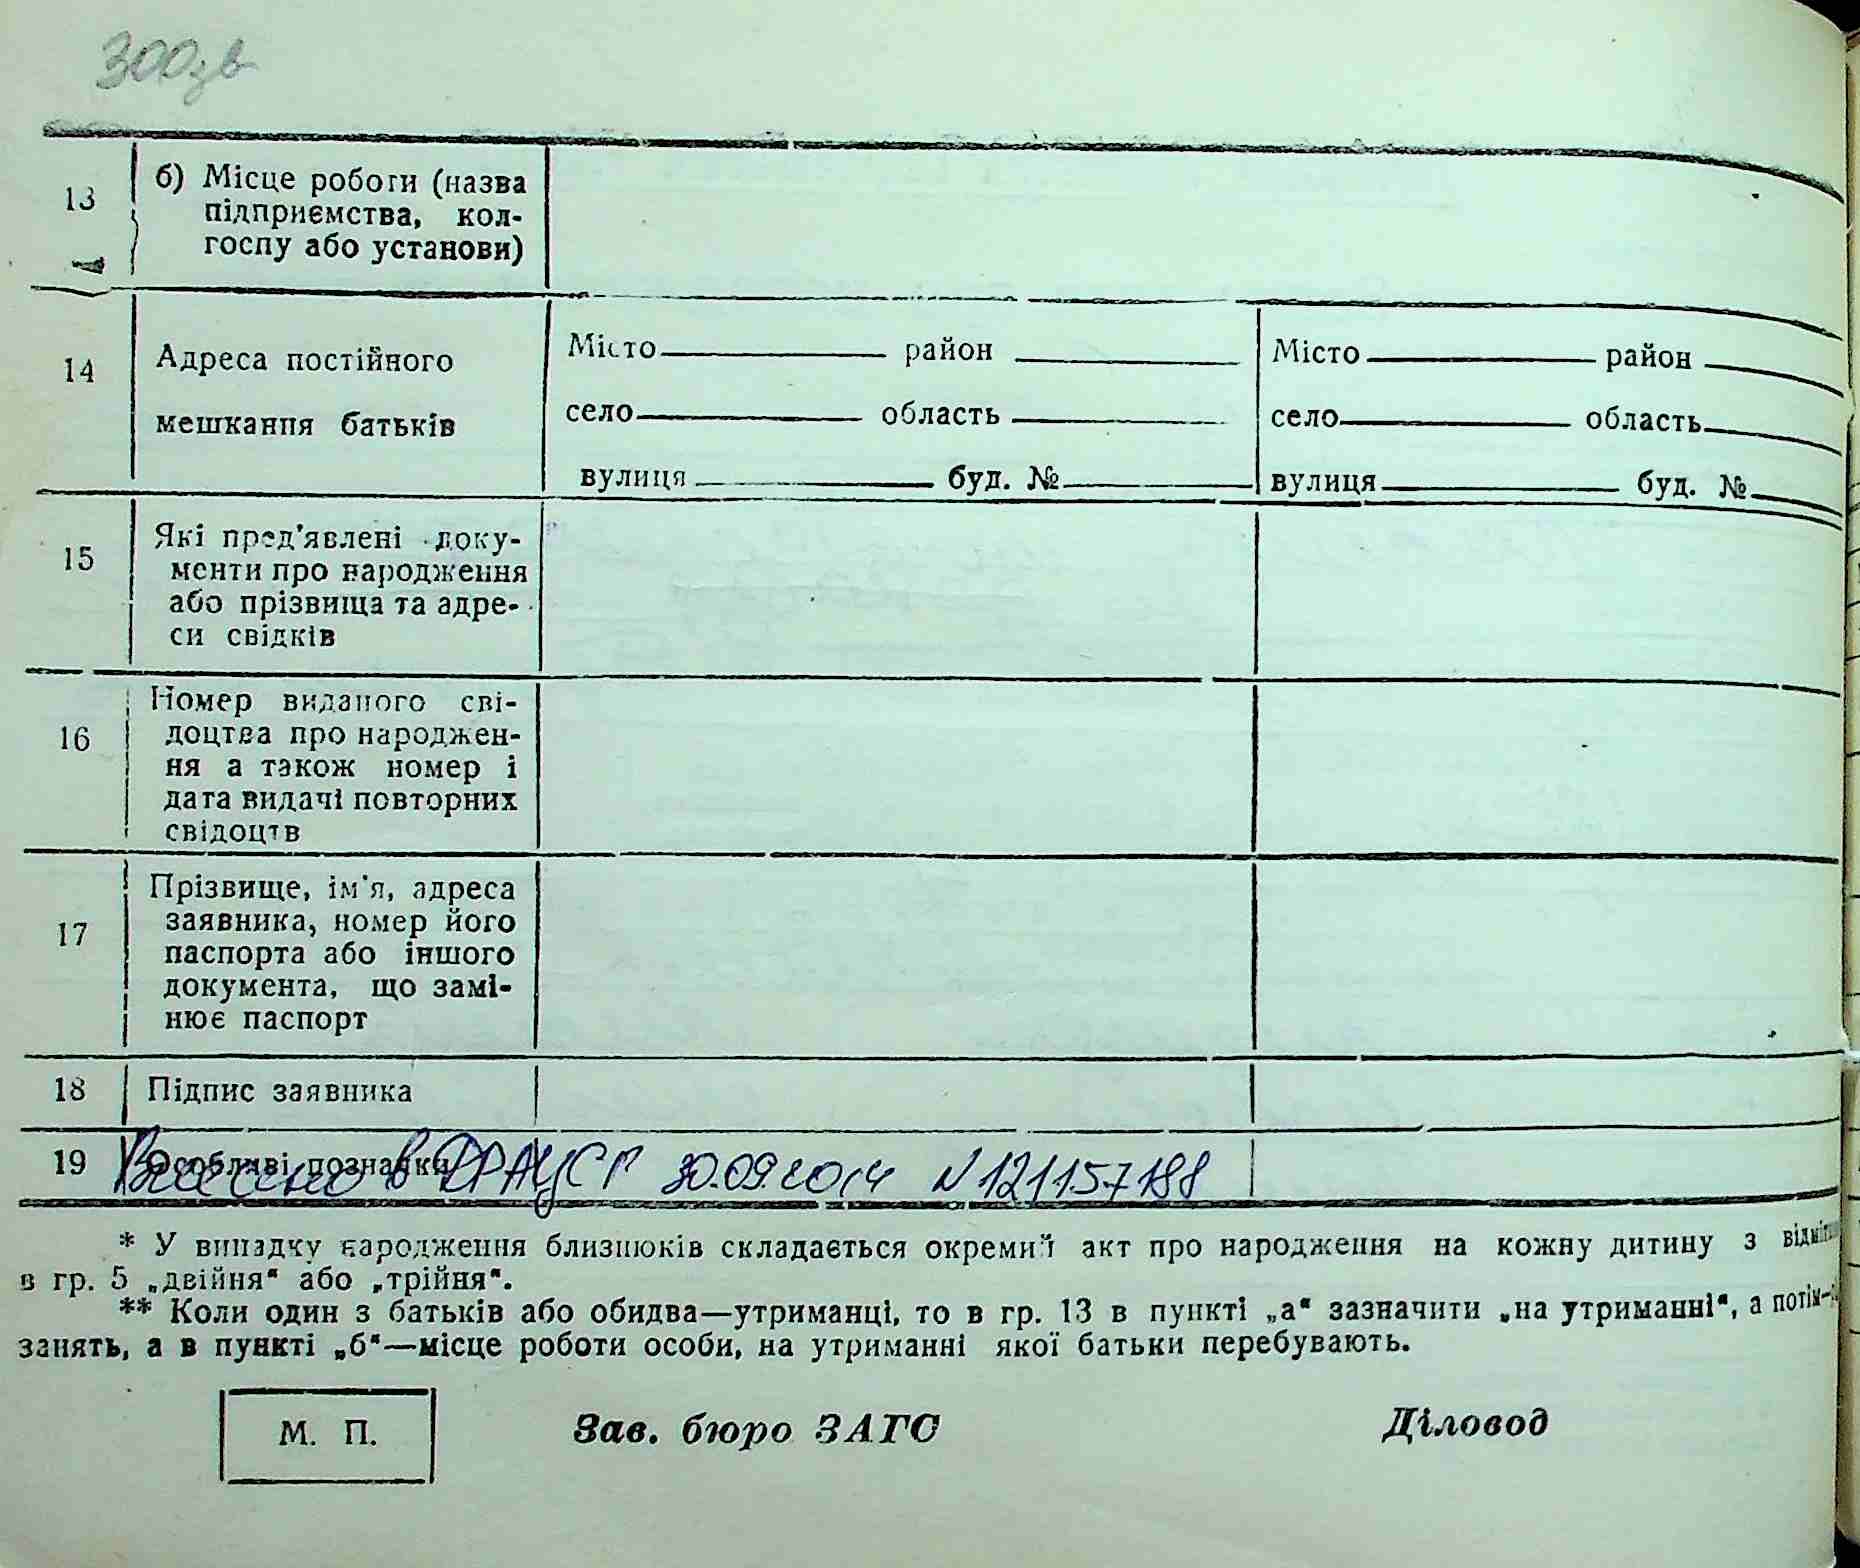 300зв
13 б) Місце роботи (назва
підприємства, кол-
госпу або установи)
14 Адреса постійного
мешкання батьків
Місто район
село область
вулиця буд. №
Місто район
село область
вулиця буд. №
15 Які пред'явлені доку-
менти про народження
або прізвища та адре-
си свідків
16 Номер виданого сві-
доцтва про народжен-
ня а також номер і
дата видачі повторних
свідоцтв
17 Прізвище, ім'я, адреса
заявника, номер його
паспорта або іншого
документа, що замі-
нює паспорт
18 Підпис заявника
19 Особливі познаки
Внесено в ДРАЦСГ 30.09.2014 N121157188
* У випадку народження близнюків складається окремий акт про народження на кожну дитину з
в гр. 5 „двійня“ або „трійня“.
** Коли один з батьків або обидва—утриманці, то в гр. 13 в пункті „а“ зазначити „на утриманні“, а потім—
занять, а в пункті „б“—місце роботи особи, на утриманні якої батьки перебувають.
М. П. Зав. бюро ЗАГС Діловод